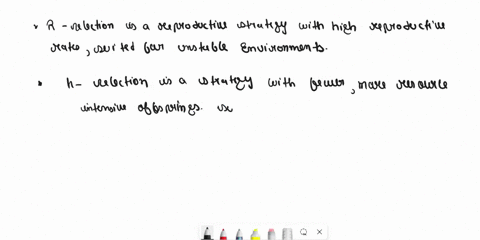 R-selection is a reproductive strategy with high reproductive
rate, suited for unstable Environments.
k- selection is a strategy with fewer, more resource
intensive offsprings.